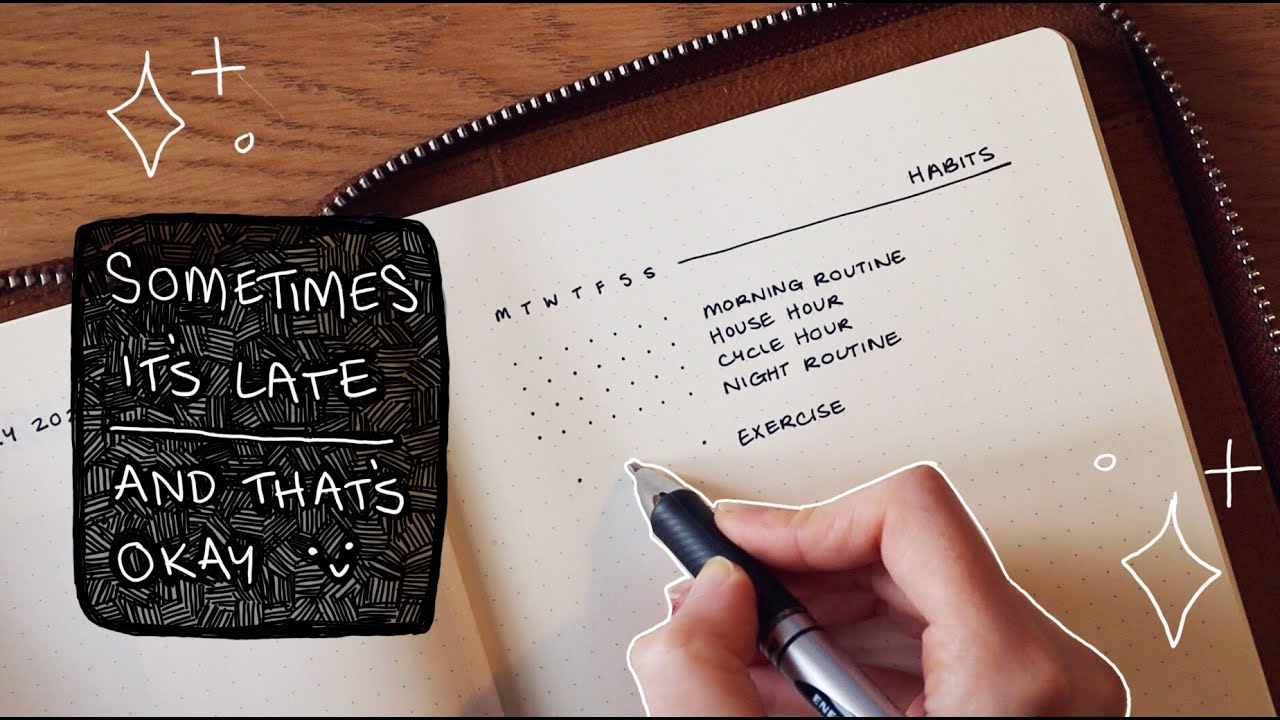 SOMETIMES
IT'S LATE
AND THAT'S
OKAY
HABITS
M T W T F S S
MORNING ROUTINE
HOUSE HOUR
CYCLE HOUR
NIGHT ROUTINE
EXERCISE